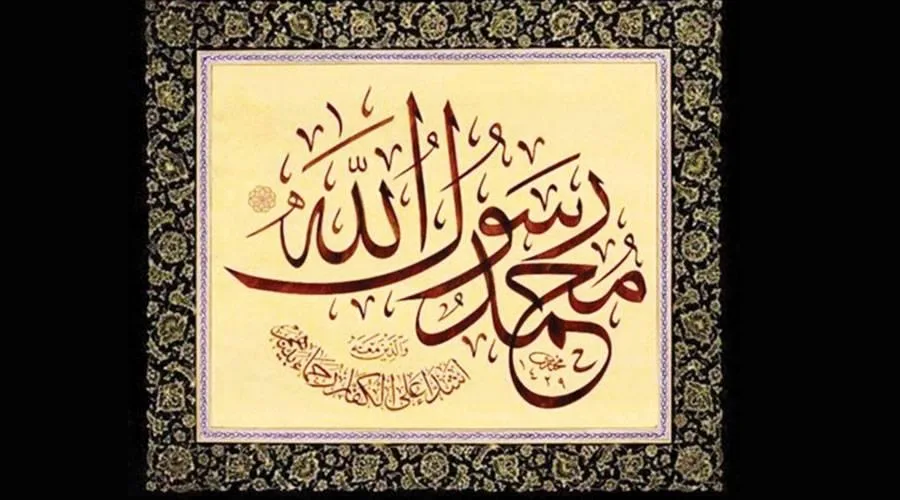 محمد رسول الله
والذين معه
أشداء على الكفار رحماء بينهم
١٤٢٩